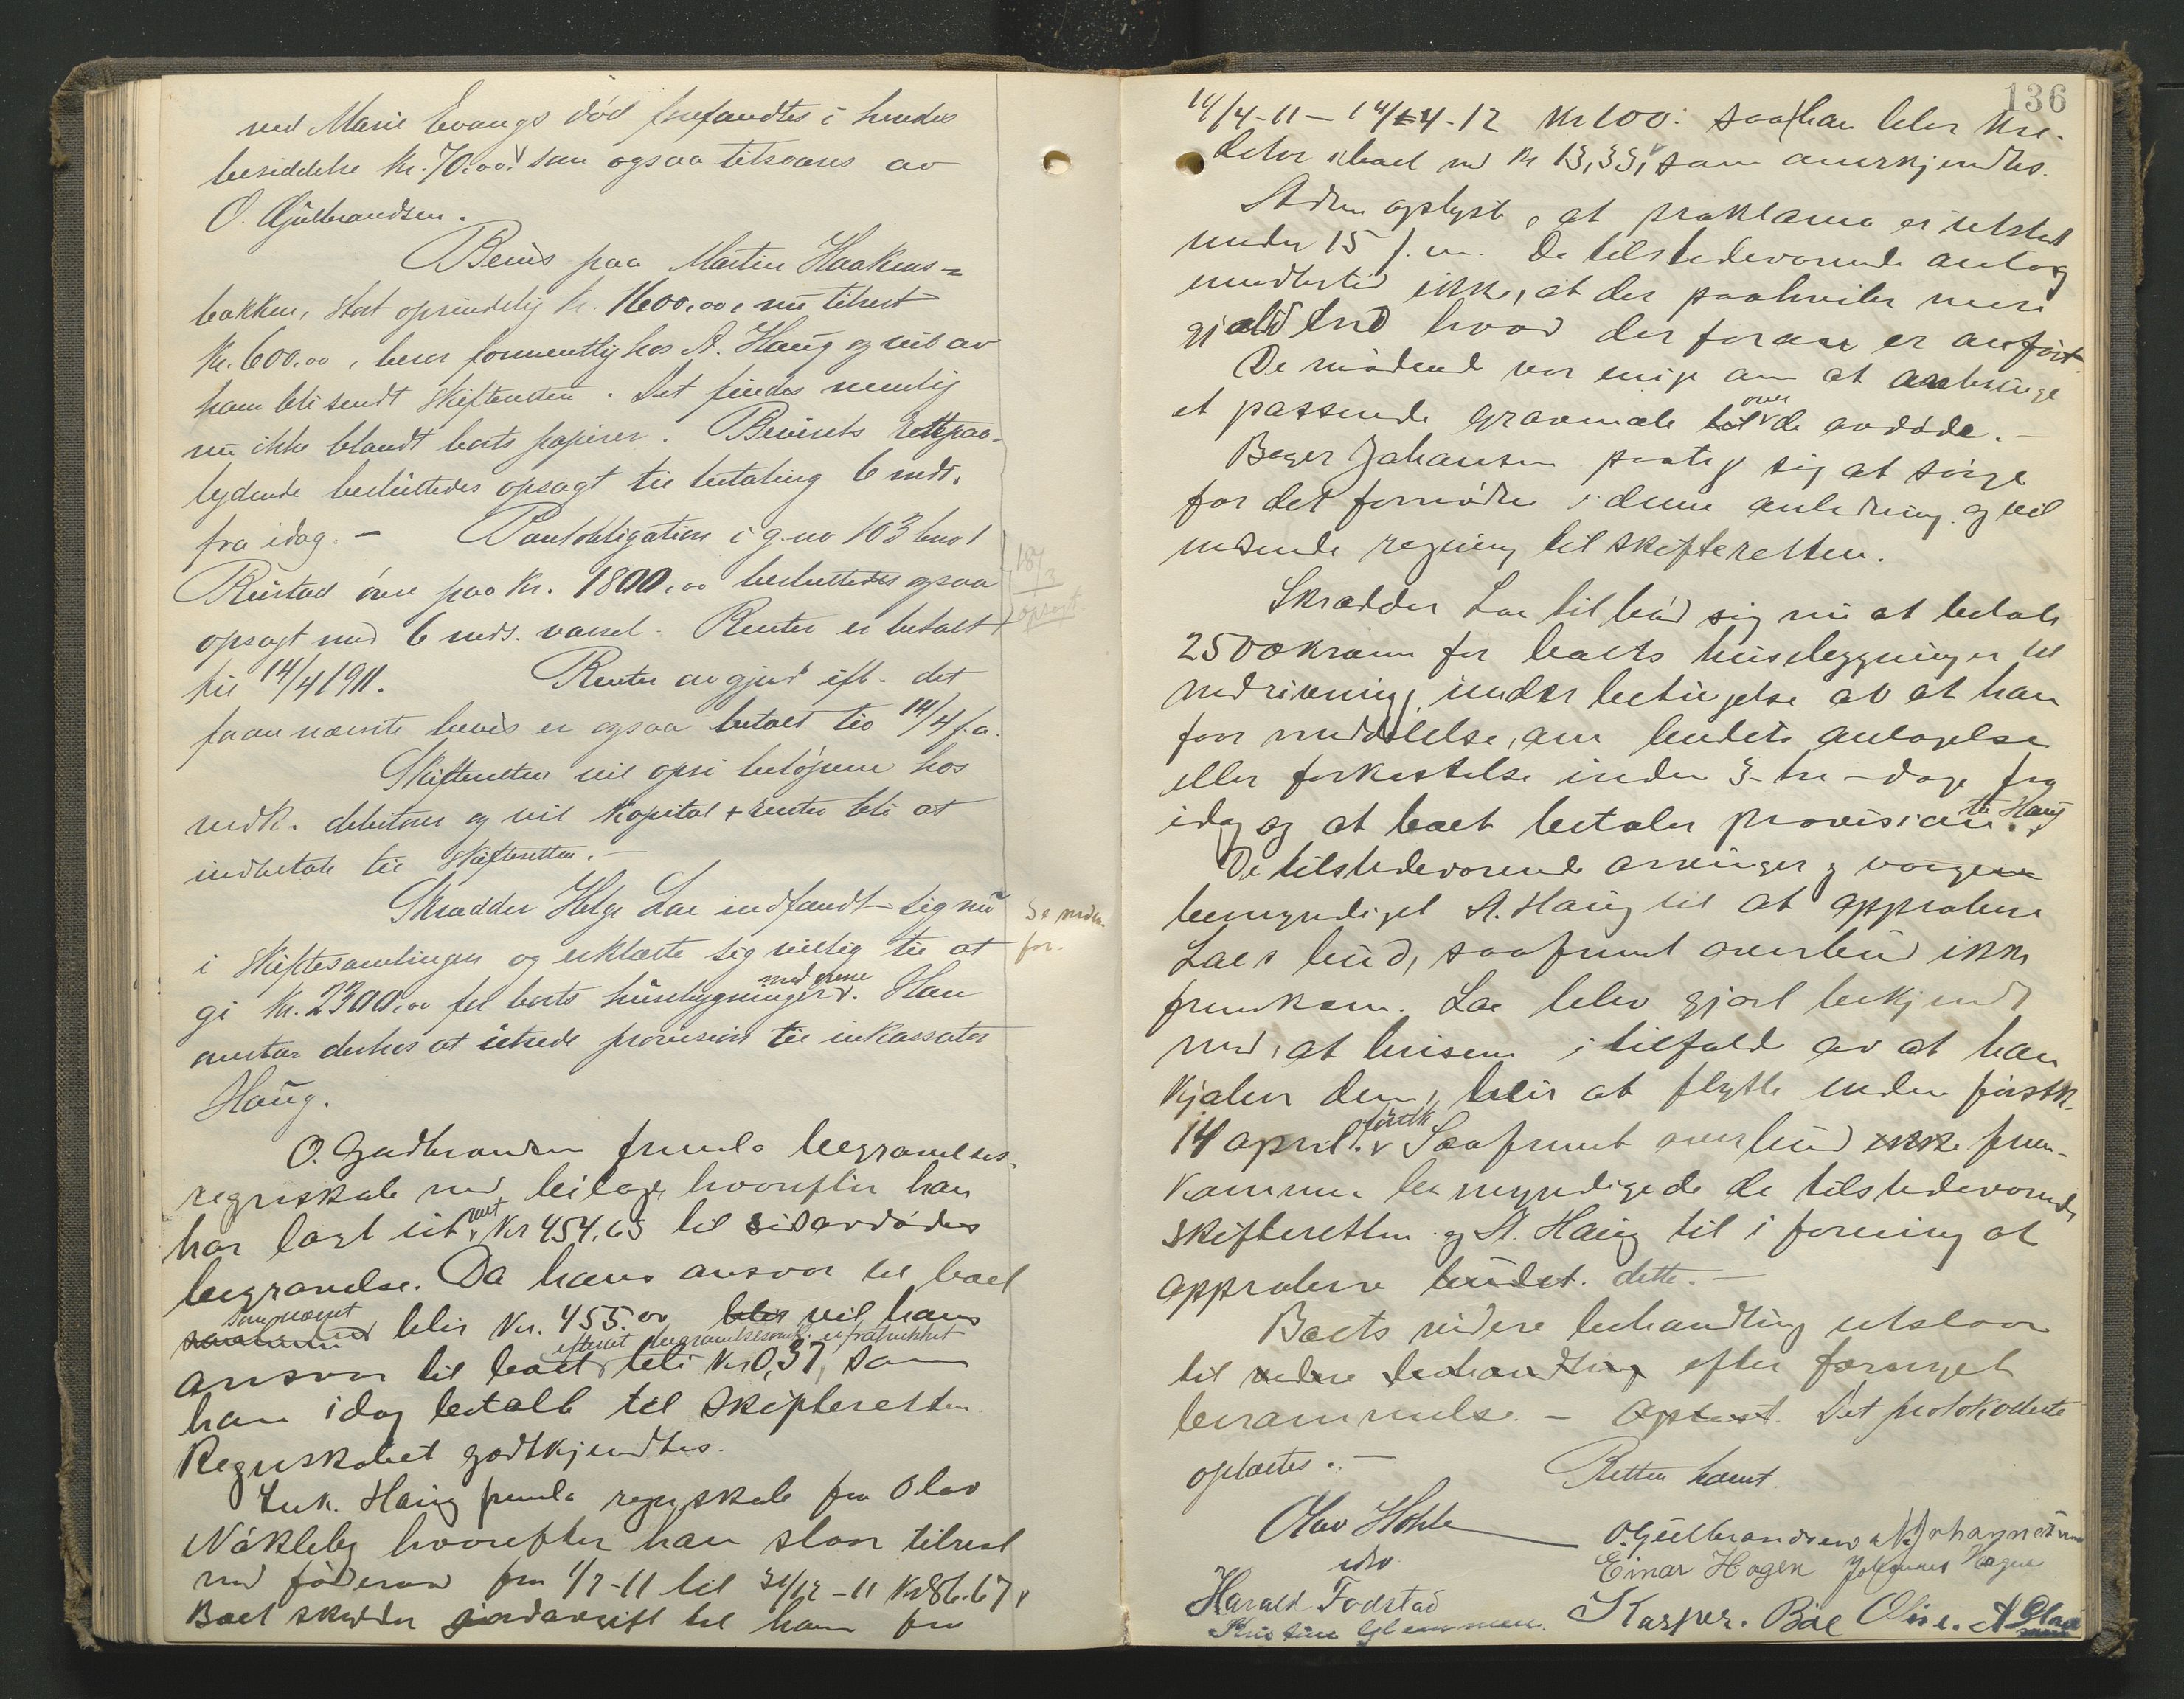 ved Marie Evangs död forefandtes i hendes
besiddelse kr. 70.00. som ogsaa tilsvares av
O. Gulbrandsen.
Bevis paa Martin Haakens-
bakken, stort oprindelig kr. 1600.00, nu tilrest
kr. 600.00, beror formentlig hos A. Haug og vil av
ham bli sendt skifteretten. Det findes nemlig
nu ikke blandt boets papirer. Bevisets rettepaa-
lydende besluttedes opsagt til betaling 6 mdr.
fra idag. - Pantobligation i g.no 103 bno 1
Rustad övre paa kr. 1800.00 besluttedes ogsaa
opsagt med 6 mdrs. varsel. Renter er betalt
til 14/4 1911. Renter avgjort ifl. det
foran nævnte bevis er ogsaa betalt til 14/4 f.a.
18/3
opsagt.
Skifteretten vil opsi belöpene hos
vedk. debitorer og vil kapital + renter bli at
indbetale til skifteretten. -
Skrædder Helge Lae indfandt sig nu
i skiftesamlingen og erklærte sig villig til at
gi kr. 2300.00 for boets husebygninger med ovne. Han
overtar derhos at utrede provision til inkassator
Haug.
Se neden-
for.
O. Gudbrandsen fremla begravelses-
regnskab med bilage hvorefter han
har lagt ut kr 454.63 til sidavdödes
begravelse. Da hans ansvar til boet
som nævnt blir kr. 455.00 blir vil hans
ansvar til boet efterat begravelsesomk. er fratrukket bli kr 0,37, som
han idag betalte til skifteretten.
Regnskabet godtkjendtes.
Ink. Haug fremla regnskab fra Olav
Nökleby hvorefter han staar tilrest
med föderaad fra 1/7-11 til 31/12-11 kr 86.67,
Boet skylder jordavgift til ham fra
136
14/4-11 - 14/4-12 kr 100: saa han blir kre-
ditor i boet med kr 13,33, som anerkjendtes.
Adm. oplyste, at proklama er utstedt
under 15 f.m. De tilstedeværende antog
imidlertid ikke, at der paahviler mere
gjæld end hvad der foran er anfört.
De mödende var enige om at anbringe
et passende gravmæle til over de avdöde. -
Bager Johansen paatog sig at sörge
for det fornödne i denne anledning og vil
indsende regning til skifteretten.
Skrædder Lae tilböd sig nu at betale
2500 kroner for boets husebygninger til
nedrivning, under betingelse av at han
faar meddelelse, om budets antagelse
eller forkastelse inden 3 - tre - dage fra
idag og at boet betaler provision til Haug.
De tilstedeværende arvinger og verger
bemyndiget A. Haug til at approbere
Laes bud, saafremt overbud ikke
fremkom. Lae blev gjort bekjendt
med, at husene i tilfælde av at han
kjöber dem, blir at flytte inden förstk.
14 april. förstk. Saafremt overbud ikke frem-
kommer bemyndigede de tilstedeværende
skifteretten og A. Haug til i forening at
approbere budet. dette. -
Boets videre behandling utstaar
til videre behandling efter forevisget
berammelse. - Oplæst. Det protokollerte
oplæstes. - Retten hævet.
Olav Hohle
Harald Fodstad
O. Gulbrandsen
Einar Hagen Johannes Hagen
Kasper. Bäe